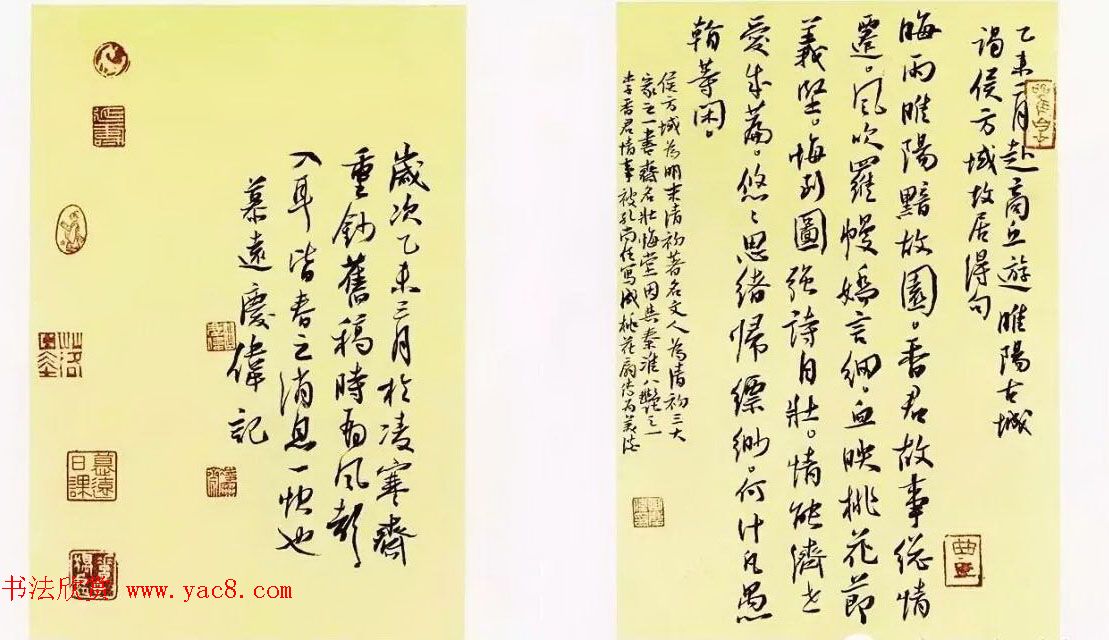 乙未二月赴商丘遊睢陽古城
謁侯方域故居得句
晦雨睢陽黯故園。香君故事總情
遷。風吹羅幔嬌言細。血映桃花節
義堅。悔到圖強詩自壯。情能濟世
愛成篇。悠々思緒歸縹緲。何計凡愚
翰等閑。
侯方域為明末清初著名文人為清初三大
家之一書齋名壯悔堂因與秦淮八艷之一
李香君情事被孔尚任寫成桃花扇傳為美談
歲次乙未三月於凌寒齋
重鈔舊稿時風
入耳皆春之消息一快也
慕遠慶偉記
延壽
慕遠日課
书法欣赏 www.yac8.com